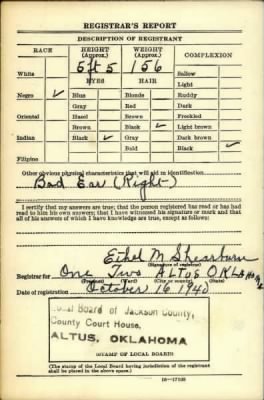 REGISTRAR'S REPORT
DESCRIPTION OF REGISTRANT
RACE HEIGHT (Approx.) WEIGHT (Approx.) COMPLEXION
5 ft 5 156
White EYES HAIR Sallow
Light
Negro ✓ Blue Blonde Ruddy
Gray Red Dark
Oriental Hazel Brown Freckled
Brown Black ✓ Light brown
Indian Black ✓ Gray Dark brown
Bald Black ✓
Filipino
Other obvious physical characteristics that will aid in identification
Bad Ear (Right)
I certify that my answers are true; that the person registered has read or has
had read to him his own answers; that I have witnessed his signature or mark and that
all of his answers of which I have knowledge are true, except as follows:
Ethel M Shearburn
(Signature of registrar)
Registrar for One Two ALTUS OKLAHOMA
(Precinct) (Ward) (City or county) (State)
Date of registration October 16 1940
Local Board of Jackson County,
County Court House,
ALTUS, OKLAHOMA
(STAMP OF LOCAL BOARD)
(The stamp of the Local Board having jurisdiction of the registrant
shall be placed in the above space.)